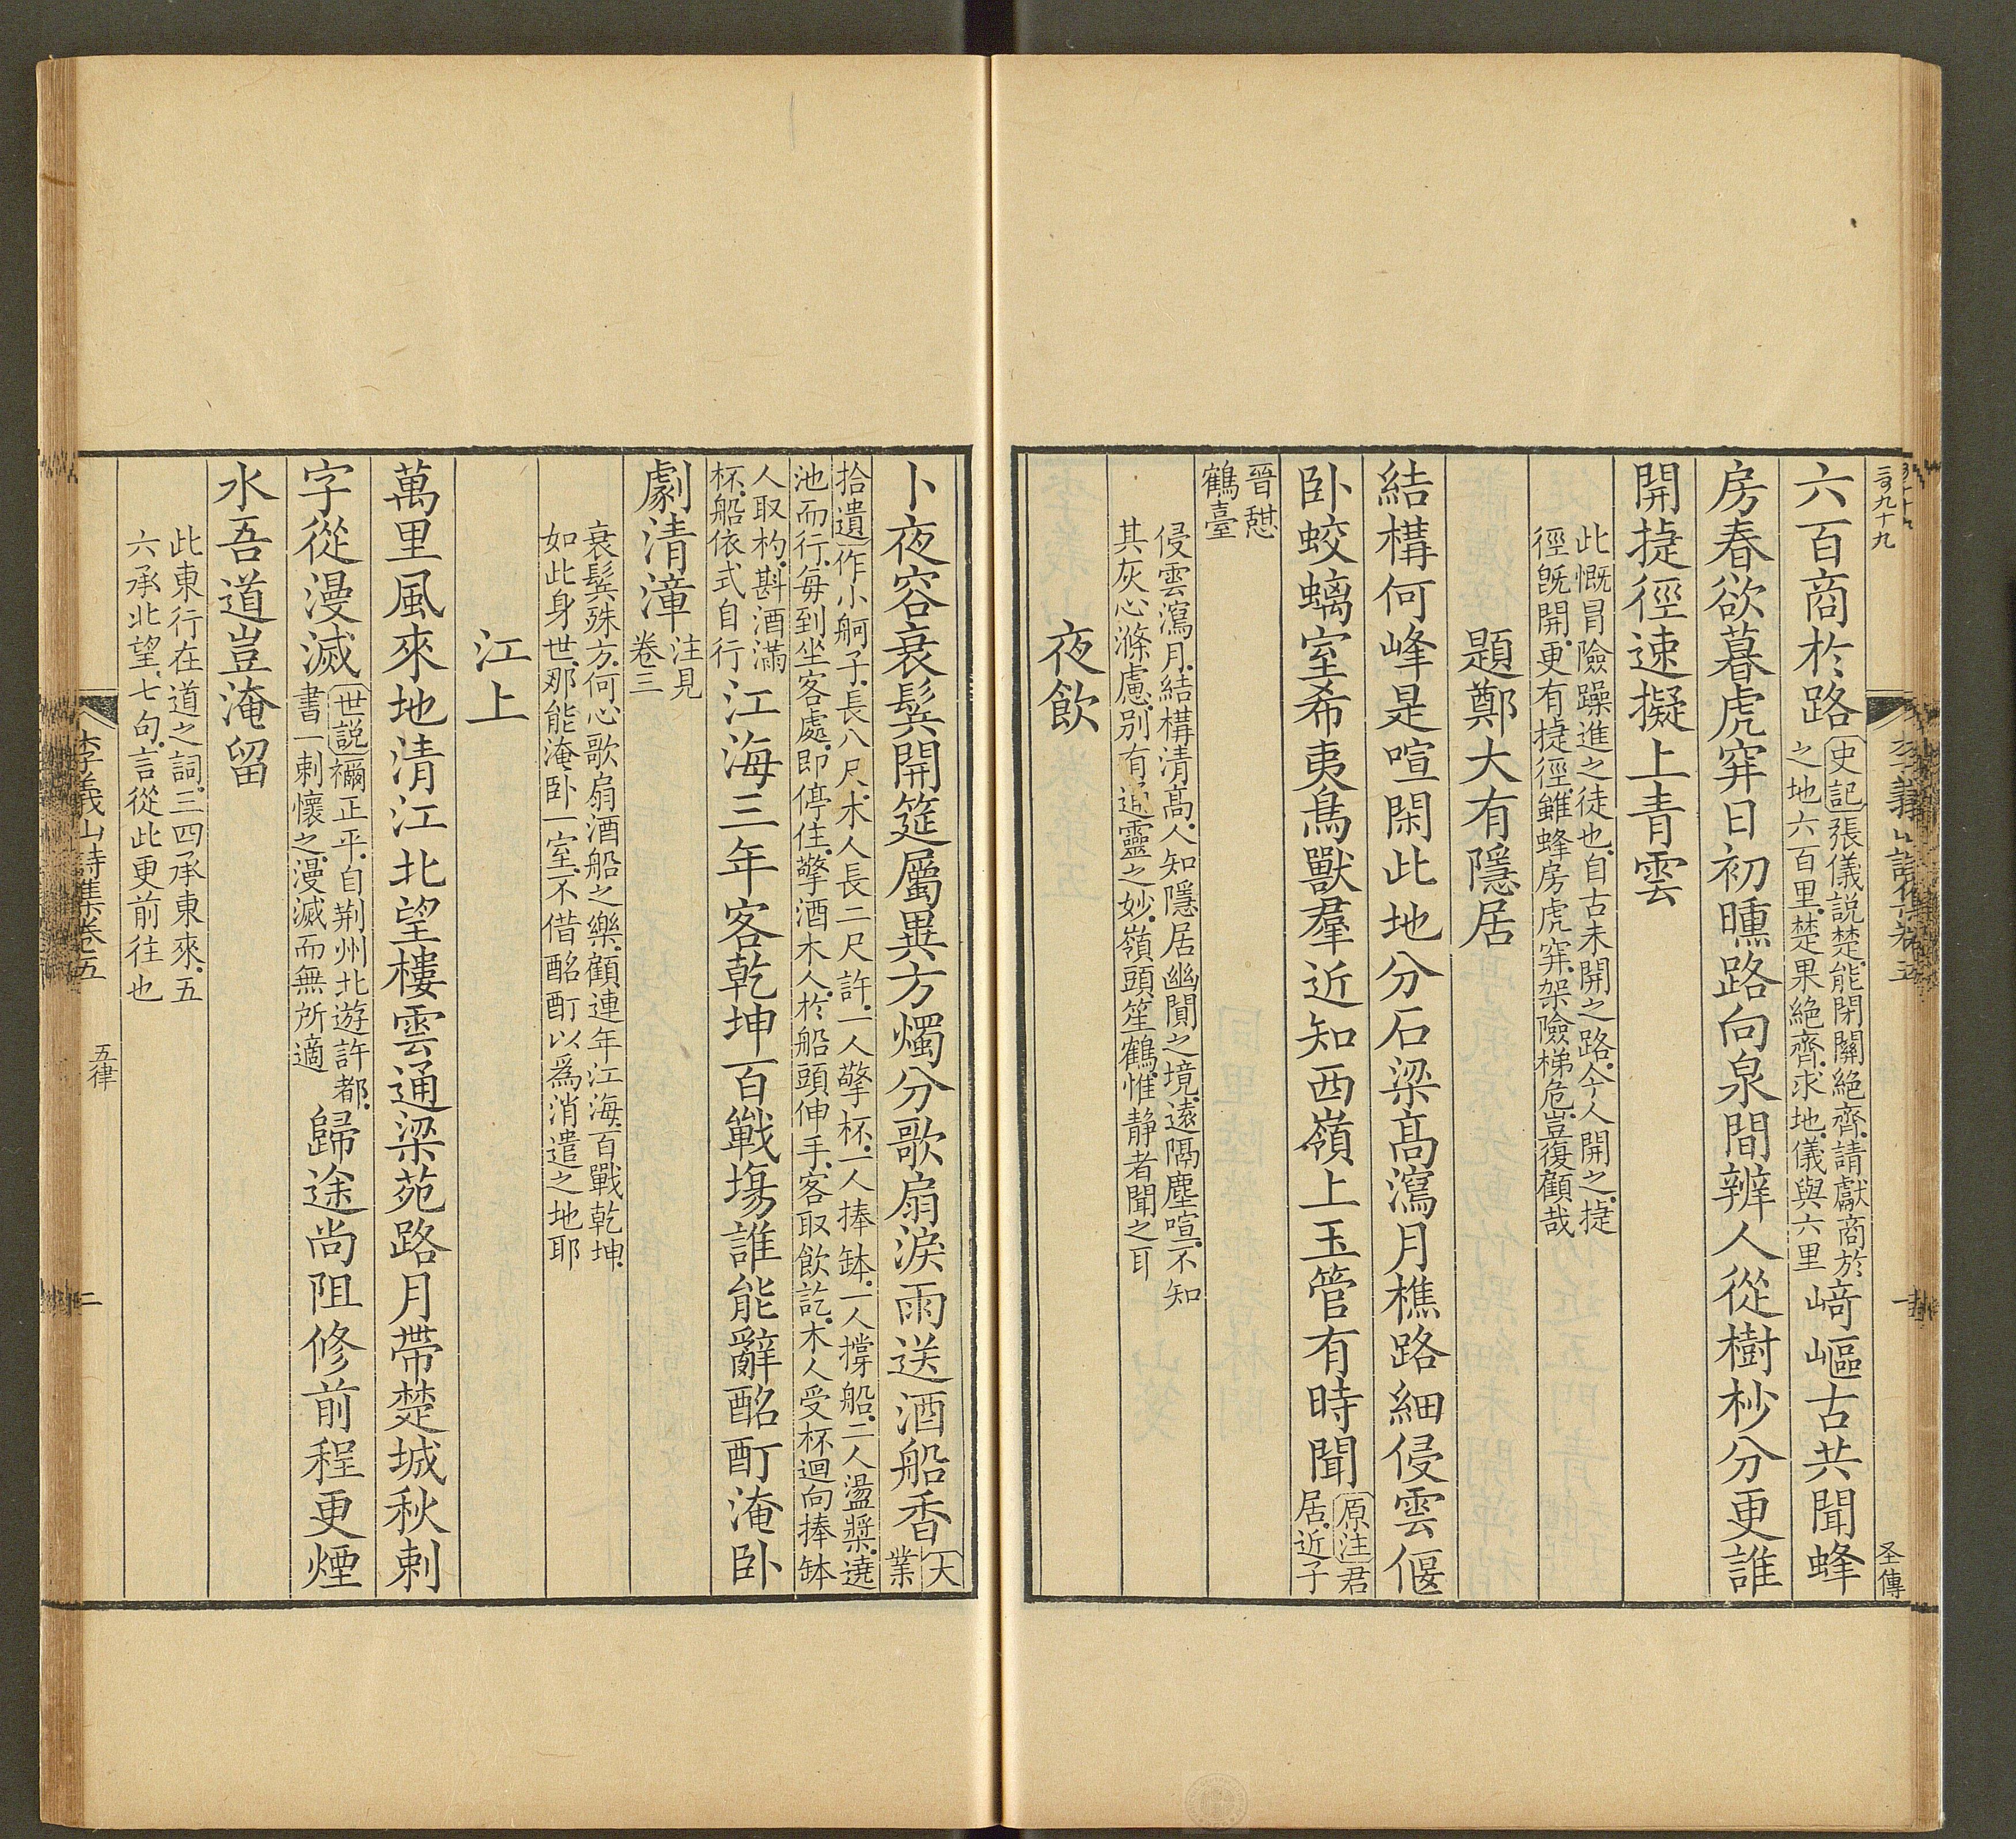 二百九十九
李義山詩集卷五
一
圣傳
六百商於路史記張儀說楚能閉關絕齊請獻商於
之地六百里楚果絕齊求地儀與六里崎嶇古共聞蜂
房春欲暮虎穽日初曛路向泉間辨人從樹杪分更誰
開捷徑速擬上青雲
此慨冒險躁進之徒也自古未開之路今人開之捷
徑旣開更有捷徑雖蜂房虎穽架險梯危豈復顧哉
題鄭大有隱居
結構何峰是喧閑此地分石梁高瀉月樵路細侵雲偃
卧蛟螭室希夷鳥獸羣近知西嶺上玉管有時聞原注君
居近子
晉憇
鶴臺
侵雲瀉月結構清高人知隱居幽閴之境遠隔塵喧不知
其灰心滌慮別有通靈之妙嶺頭笙鶴惟静者聞之耳
夜飲
卜夜容衰鬢開筵屬異方燭分歌扇淚雨送酒船香大
業
拾遺作小舸子長八尺木人長二尺許一人擎杯一人捧鉢一人撐船二人盪槳遶
池而行每到坐客處卽停住擎酒木人於船頭伸手客取飲訖木人受杯迴向捧鉢
人取杓斟酒滿
杯船依式自行江海三年客乾坤百戰塲誰能辭酩酊淹卧
劇清漳注見
卷三
衰鬢殊方何心歌扇酒船之樂顧連年江海百戰乾坤
如此身世那能淹卧一室不借酩酊以爲消遣之地耶
江上
萬里風來地清江北望樓雲通梁苑路月帶楚城秋刺
字從漫滅世說禰正平自荆州北遊許都
書一刺懷之漫滅而無所適歸途尚阻修前程更煙
水吾道豈淹留
此東行在道之詞三四承東來五
六承北望七句言從此更前往也
李義山詩集卷五
五律
二